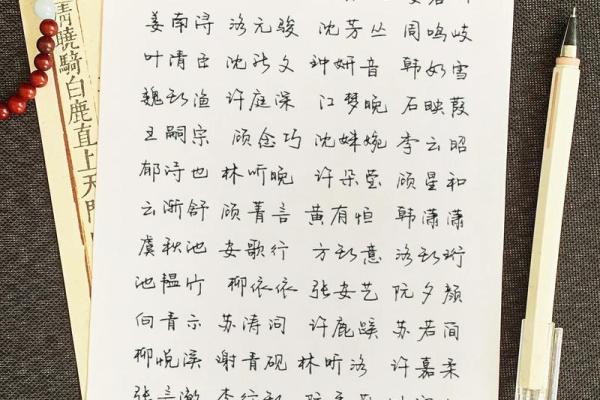 姜南浔 洛元骏 沈芳丛 周鸣岐
叶清臣 沈 文 钟妍音 韩如雪
魏 渔 许庭深 江梦晚 石映葭
王嗣宗 顾念巧 沈姝婉 李云昭
郁浔也 林听晚 许朵莹 顾星和
云渐舒 顾菁言 黄有恒 韩潇潇
虞秋池 安歌行 方 意 洛 珩
池韫竹 柳依依 张安艺 阮夕颜
向青示 苏涛问 许鹿蹊 苏若简
柳悦溪 谢青砚 林听洛 许嘉柔
清曉騎白鹿直上天門